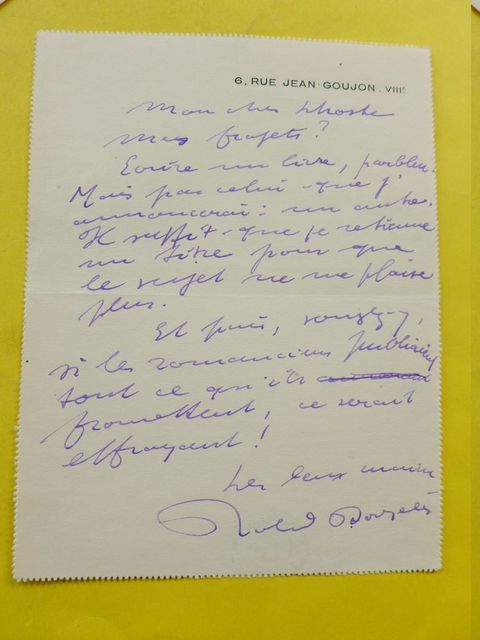 6, RUE JEAN GOUJON. VIIIᵉ
Mon cher Lhoste
Mes projets ?
Ecrire un livre, parbleu.
Mais pas celui que j'
annoncerai : un autre.
Il suffit que je retienne
un titre pour que
le sujet ne me plaise
plus.
Et puis, songez-y,
si les romanciers publiaient
tout ce qu'ils
promettent, ce serait
effrayant !
Les deux mains
Roland Dorgelès